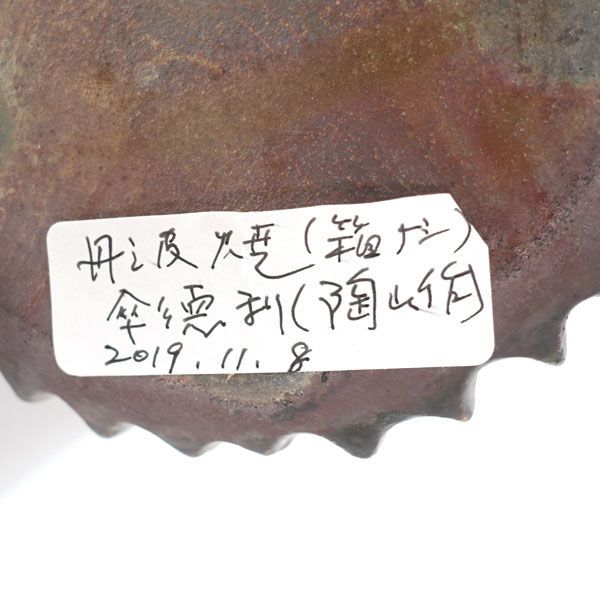 丹波焼(箱ナシ)
傘徳利(陶山作)
2019.11.8